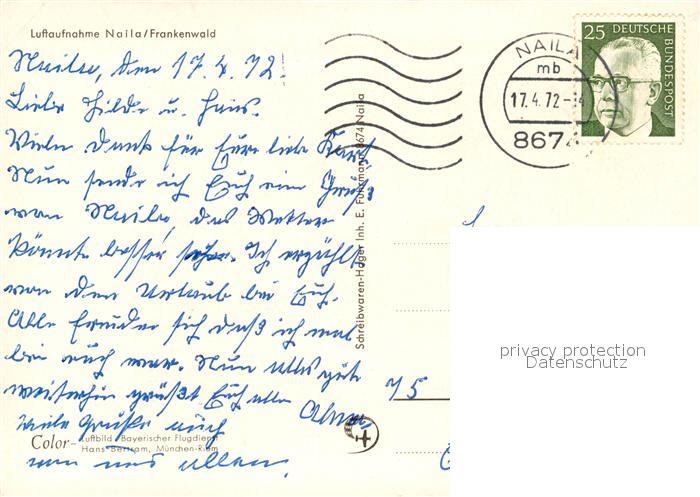 Luftaufnahme Naila/Frankenwald
Naila, den 17.4.72.
Liebe Hilde u. Hans.
Vielen Dank für Eure liebe Karte
Nun sende ich Euch eine Grüß
von Naila, das Wetter
könnte besser sein. Ich erzählte
von den Urlaub bei Euch.
Alle freuden sich daß ich mal
bei euch war. Nun alles gute
weiterhin grüßt Euch alle
viele Grüße auch
von uns allen.
Color- Luftbild Bayerischer Flugdienst
Hans Bertram, München-Riem
Schreibwaren-Hager Inh. E. Fuhrmann 8674 Naila
NAILA
mb
17.4.72-14
8674
25 DEUTSCHE BUNDESPOST
75
privacy protection
Datenschutz